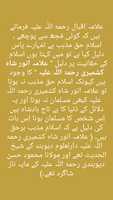 علامہ اقبال رحمہ اللہ علیہ فرماتے
ہیں کہ کوئی مجھ سے پوچھے ،
اسلام حق مذہب ہے تمہارے پاس
دلیل کیا ہے تو میں کہتا ہوں اسلام
کی حقانیت پر دلیل " علامہ انور شاہ
کشمیری رحمہ اللہ علیہ " کا وجود
ہے ۔ اگر اسلام حق مذہب نہ ہوتا
تو علامہ انور شاہ کشمیری رحمہ اللہ
علیہ کبھی مسلمان نہ ہوتا اور یہ
دلائل کی دنیا کا بے تاج بادشاہ ہے
اس شخص کا مسلمان ہونا اس بات
کی دلیل ہے کہ اسلام مذہب برحق
ہے۔ ( علامہ انور شاہ کشمیری رحمہ
اللہ علیہ دارلعلوم دیوبند کے شیخ
الحدیث تھے اور مولانا محمود حسن
دیوبندی رحمہ اللہ علیہ کے مایہ ناز
شاگرد تھے۔)